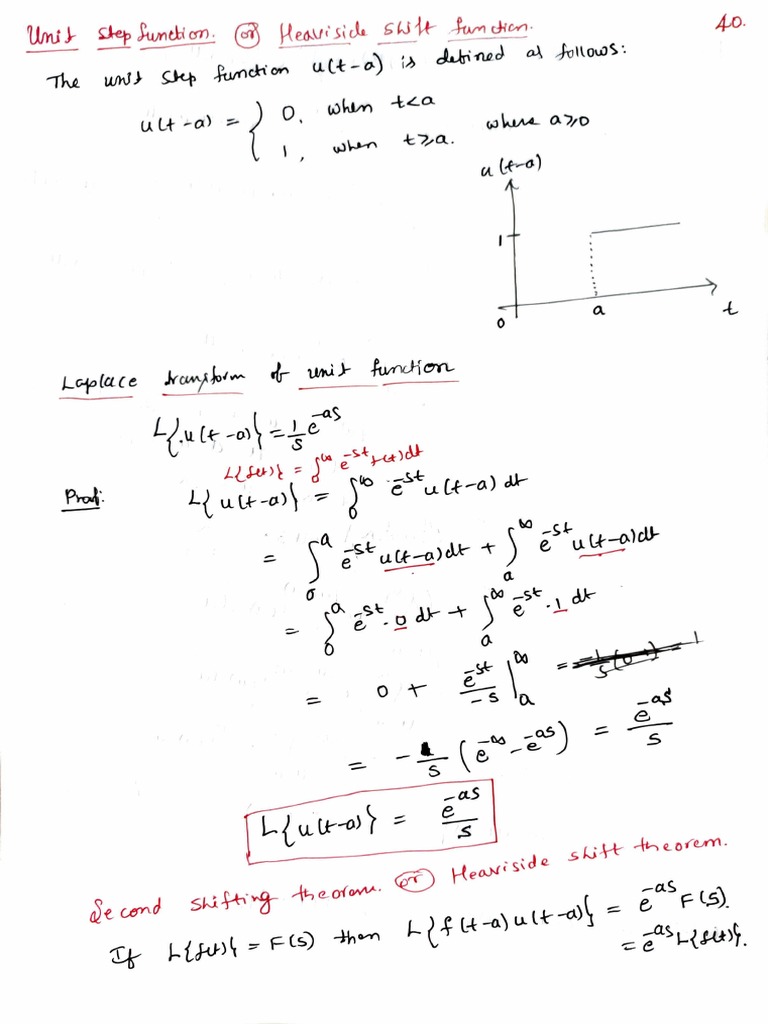 Unit Step function. or Heaviside Shift function. 40.
The unit step function u(t-a) is defined as follows:
u(t-a) = { 0, when t<a
1, when t⩾a. where a⩾0
u(t-a)
1
0 a t
Laplace transform of unit function
L{u(t-a)} = 1/s e^-as
L{f(t)} = ∫₀^∞ e^-st f(t)dt
Proof: L{u(t-a)} = ∫₀^∞ e^-st u(t-a) dt
= ∫₀^a e^-st u(t-a)dt + ∫ₐ^∞ e^-st u(t-a)dt
= ∫₀^a e^-st · 0 dt + ∫ₐ^∞ e^-st · 1 dt
= 0 + e^-st/-s |ₐ^∞
= -1/s (e^-∞ - e^-as) = e^-as/s
L{u(t-a)} = e^-as/s
Second shifting theorem. or Heaviside shift theorem.
If L{f(t)} = F(s) then L{f(t-a)u(t-a)} = e^-as F(s).
= e^-as L{f(t)}.